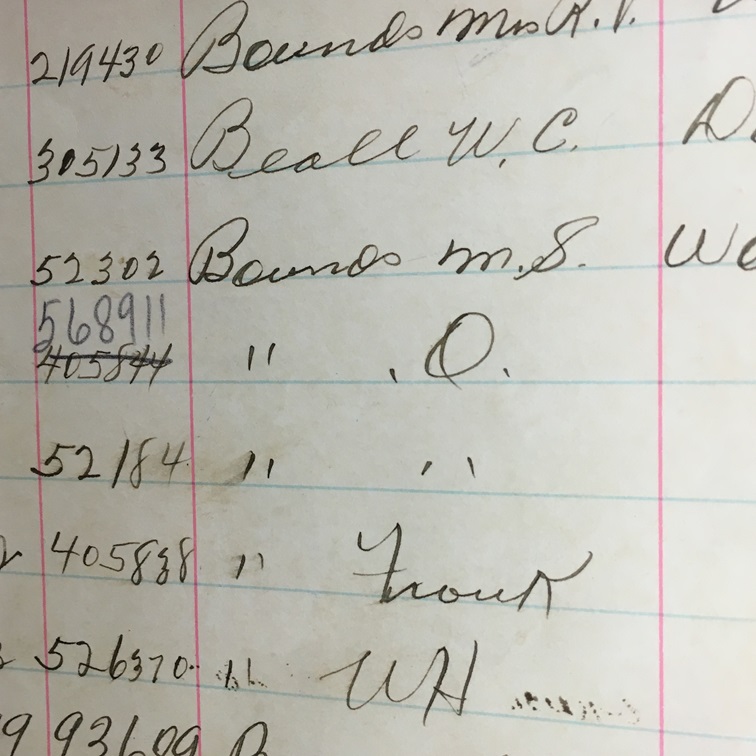 219430 Bounds Mrs R.V.
305133 Beall W. C. D
52302 Bounds M. S. Wo
568911
405844 " . O.
52184 " "
405838 " Frank
526370 " WH
93609 B